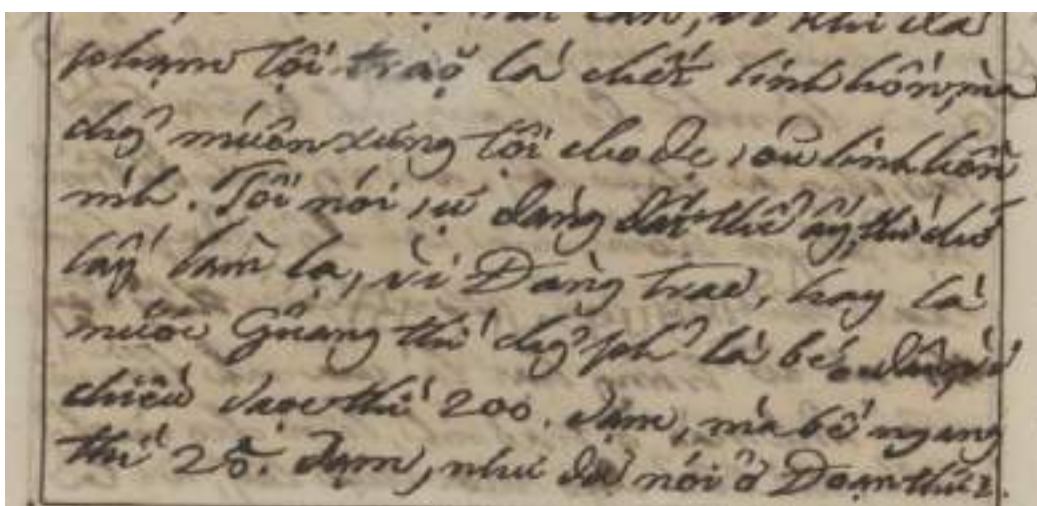 vì khi đã
phạm tội trạỡ là chết linh hồn, mà
chg̃ muốn xưng tội cho đẹ, íóũ linh hồn
mình. Tôi nói sự đàng đất thể ấy, thì chớ
lấy làm lạ, vì Đàng traở, hay là
nước Quang thì chg̃ phỉ là bé
chiều daọc thì 200. dặm, mà bề ngang
thì 25. dặm, như đã nói ở Đoạn thứ 2.